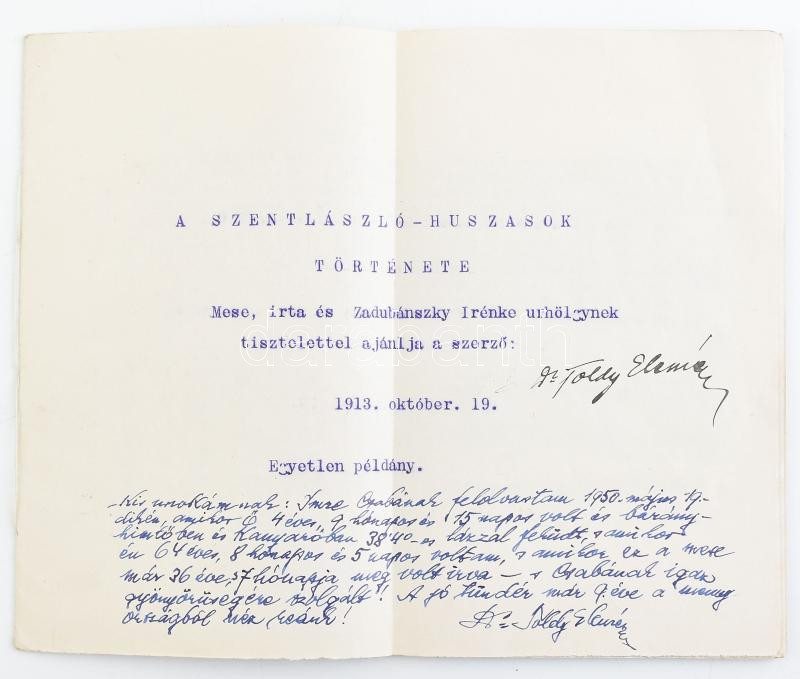 A SZENTLÁSZLÓ-HUSZASOK
TÖRTÉNETE
Mese, irta és Zadubánszky Irénke urhölgynek
tisztelettel ajánlja a szerző:
darabanth
Dr Toldy Elemér
1913. október. 19.
Egyetlen példány.
Kis unokámnak: Imre Csabának felolvastam 1950. május 19.-
dikén, amikor Ő 4 éves, 9 hónapos és 15 napos volt és bárány-
himlőben és Kanyaróban 40-os lázzal feküdt, s amikor
én 64 éves, 8 hónapos és 5 napos voltam, s amikor ez a mese
már 36 éve, hónapja meg volt irva - s Csabának igaz
gyönyörüségére szolgált! A jó tündér már 9 éve a meny
országból néz reánk!
Dr Toldy Elemér